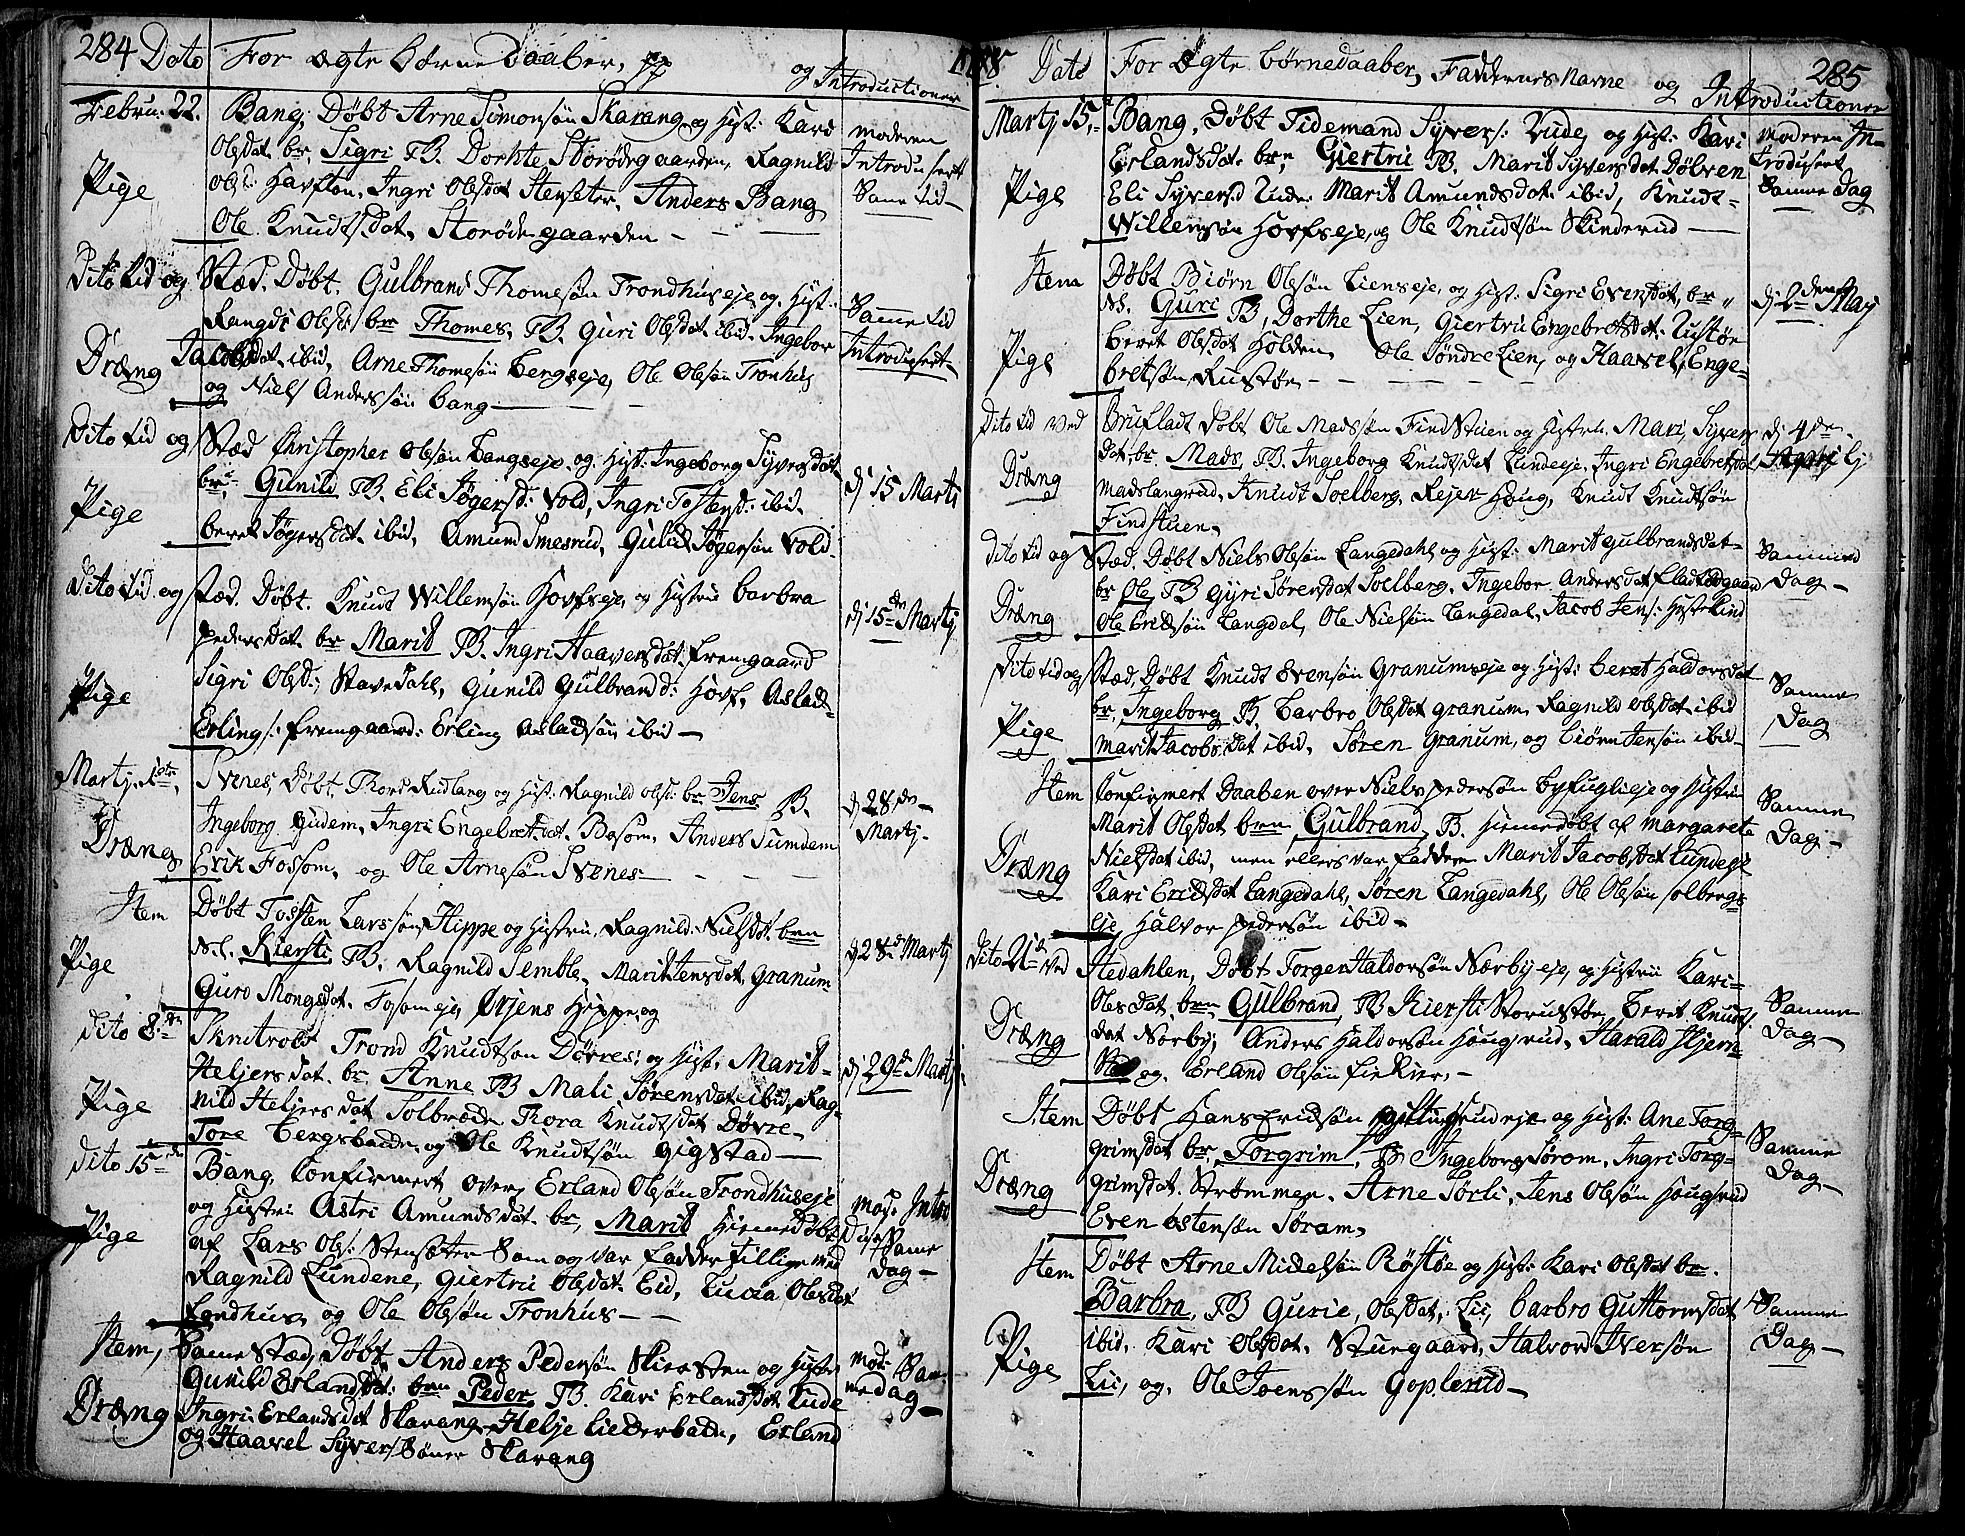 284 Dato For ægte børne Daaber, pp og Introductioner
Februr: 22. Bang, Døbt Arne Simonsøn Skarang og Hist: Kari
Olsdat br. Sigri TB. Dorhte Storødegaarden, Ragnild
Pige Ols: Havften, Ingri Olsdat Stenseter, Anders Bang
Ole Knudtsdat, Storødegaarden
moderen
Introdusert
Same tid
Dito tid og Stæd. Døbt. Gulbrand Thomesøn Trondhuseje og Hist:
Rangdi Olsd: br Thomes, TB. Guri Olsdat ibid. Ingebor
Dræng Jacobsdat ibid, Arne Thomesøn Bergseje, Ole Olsøn Tronhus
og Niels Anderssøn bang
Samme tid
Introdusert
Dito tid og Stæd Christopher Olsøn Bangseje og Hist: Ingeborg Syversdat
br. Gunild TB. Eli Jøgersd: Vold, Ingri Tostensd: ibid.
Pige
beret Jøgersdat ibid, Amund Smesrud, Gulich Jøgersøn Vold
dj 15 Martj
Dito tid og Stæd. Døbt. Knudt Willemsøn Hovfseje og Histrue barbra
Pedersdat br Marit TB. Ingri Haaversdat fremgaard
Pige Sigri Olsd:, Stavedahl, Gunild Gulbrandd: Hovf, Aslad
Erlings: fremgaard: Erling Asladsøn ibid
dj 15de Martj
Martj. 1ste Svenes, Døbt. Thord Rudlang og Hist: Ragnild Olsd: br Jens TB.
Ingeborg Gudem, Ingri Engebretsdat. Bosom, Anders Sundem
Dræng Erik Fossom, og Ole Arnesøn Svenes
dj 28de
Martj.
Item Døbt Tosten Larssøn Hippe og Histrue Ragnild Nielsdt. bren
Pige N. Kiersti, TB. Ragnild Semble, Marit Jensdat Granum
Guro Mongsdat. Fosomeje, Ørjens Hippe og
d 28 Martj
Dito 8de Sknitrobt Trond Knudtsøn Dövre: og Hist: Marit
Heljersdat. br Anne TB Mali Sørensdat ibid, Rag-
Pige nild Heljersdat Solbræde, Thora Knudtsdat Døvre
Tore Bergsbaden og Ole Knudtsøn Gigstad
dj 29d Martj:
Dito 15de Bang, Confirmert over Erland Olsøn Trondhuseje
og Histri Astri Amundsdat br, Marit Hiemedøbt
Pige af Lars Ols: Stensæter Som og var fadder tillige med
Ragnild Lundene, Giertru Olsdat Eid, Lucia Olesdat
Londhus, og Ole Olsøn Tronhus
mod: Intro
Same
dag
Item, Same Stæd, Døbt, Anders Pedersøn Skiersten og Histr
Gunild Erlandsdat: bren Peder TB. Kari Erlandsdat Rude
Dræng Ingri Erlandsdat Skarang, Helje Liederbaden, Erland
og Haavel Syvers Søner Skarang
mod: Sam-
me dag
Dato For Ægte børnedaaber, Faddernes Navne og Introductioner 285
Martj 15. Bang, Døbt Tidemand Syvers: Rude og Hist: Kari
Erlandsdat. bren Giertru TB. Marit Syversdat Dølven
Pige Eli Syversd Rude Marit Amundsdat ibid, Knudt-
Willemsøn Hovfseje, og Ole Knudtsøn Skinderud
moderen In-
trodusert
Samme Dag
Item Døbt Biørn Olsøn Lienseje, og Hist: Sigri Evensdat, br
N. Guri TB, Dorthe Lien, Giertru Engebretsdat. Rustøe
Pige beret Olsdat Holden, Ole Søndre Lien, og Haavel Enge-
bretsøn Rustøe
dj 2den Maj
Dito tid ved Brufladt Døbt Ole Madssøn Find Stuen og Histrue. Mari Syvers
dat. br. Mads, TB. Ingeborg Knudtsdat Lundeeje, Ingri Engebretsdat
Dræng Madslangrud, Knudt Soelberg, Rejer Houg, Knudt Knudtsøn
Findstuen
dj 4de
Dito tid og Stæd. Døbt Niels Olsøn Langedahl og Hist: Marit Gulbrandsdat
br Ole TB Gyri Sørensdat Soelberg, Ingebor Andersdat Fladhougaard
Dræng Ole Erichsøn Langdal, Ole Nielsøn Langedal, Jacob Jens: Hestekind
Sammed
Dag
Dito tid og Stæd, Døbt Knudt Evensøn Granumseje og Hist: beret Haldorsdat
br. Ingeborg TB Barbro Olsdat Granum, Ragnild Olsdat ibid
Pige Marit Jacobsdat ibid, Søren Granum, og Biørn Jensøn ibid
Samme
Dag
Item Confirmert Daaben over Niels Pedersøn Byfuglieje og Histrue
Marit Olsdat bren Gulbrand, TB. hiemedøbt af Margareta
Dræng Nielsdat ibid, men ellers var faddere Marit Jacobsdat Lundeeje
Kari Erichsdat Langedahl, Søren Langedahl, Ole Olsøn Solbergs-
eje Halvor Pedersøn ibid
Samme
Dag
Dito 21de ved Hedahlen, Døbt Torger Haldorsøn Nørbyeje, og Histrue Kari-
Olesdat, bren Gulbrand, TB Kiersti Storustøe, Beret Knudts
Dræng dat Nørby, Anders Haldorsøn Hougsrud, Harald Hjern
og Erland Olsøn Lie Kier
Samme
Dag
Item Døbt Hans Erichsøn rudeje og Hist: Ane Torg-
grimsdat br. Torgrim, TB Ingeborg Sørom, Ingri Torg-
Dræng grimsdat. Strømmen, Arne Sørli, Jens Olsøn Hougsrud
Even Ostensøn Søram,
Samme
Dag
Item Døbt Arne Michelsøn Røstøe og Hist: Kari Olsdat br.
Barbra, TB Gurie, Olsdat, Lii, barbro Guttormsdat
Pige ibid, Kari Olsdat. Stuegaard, Halvor Iversøn
Lii, og. Ole Joenssøn Goplerud
Samme
Dag